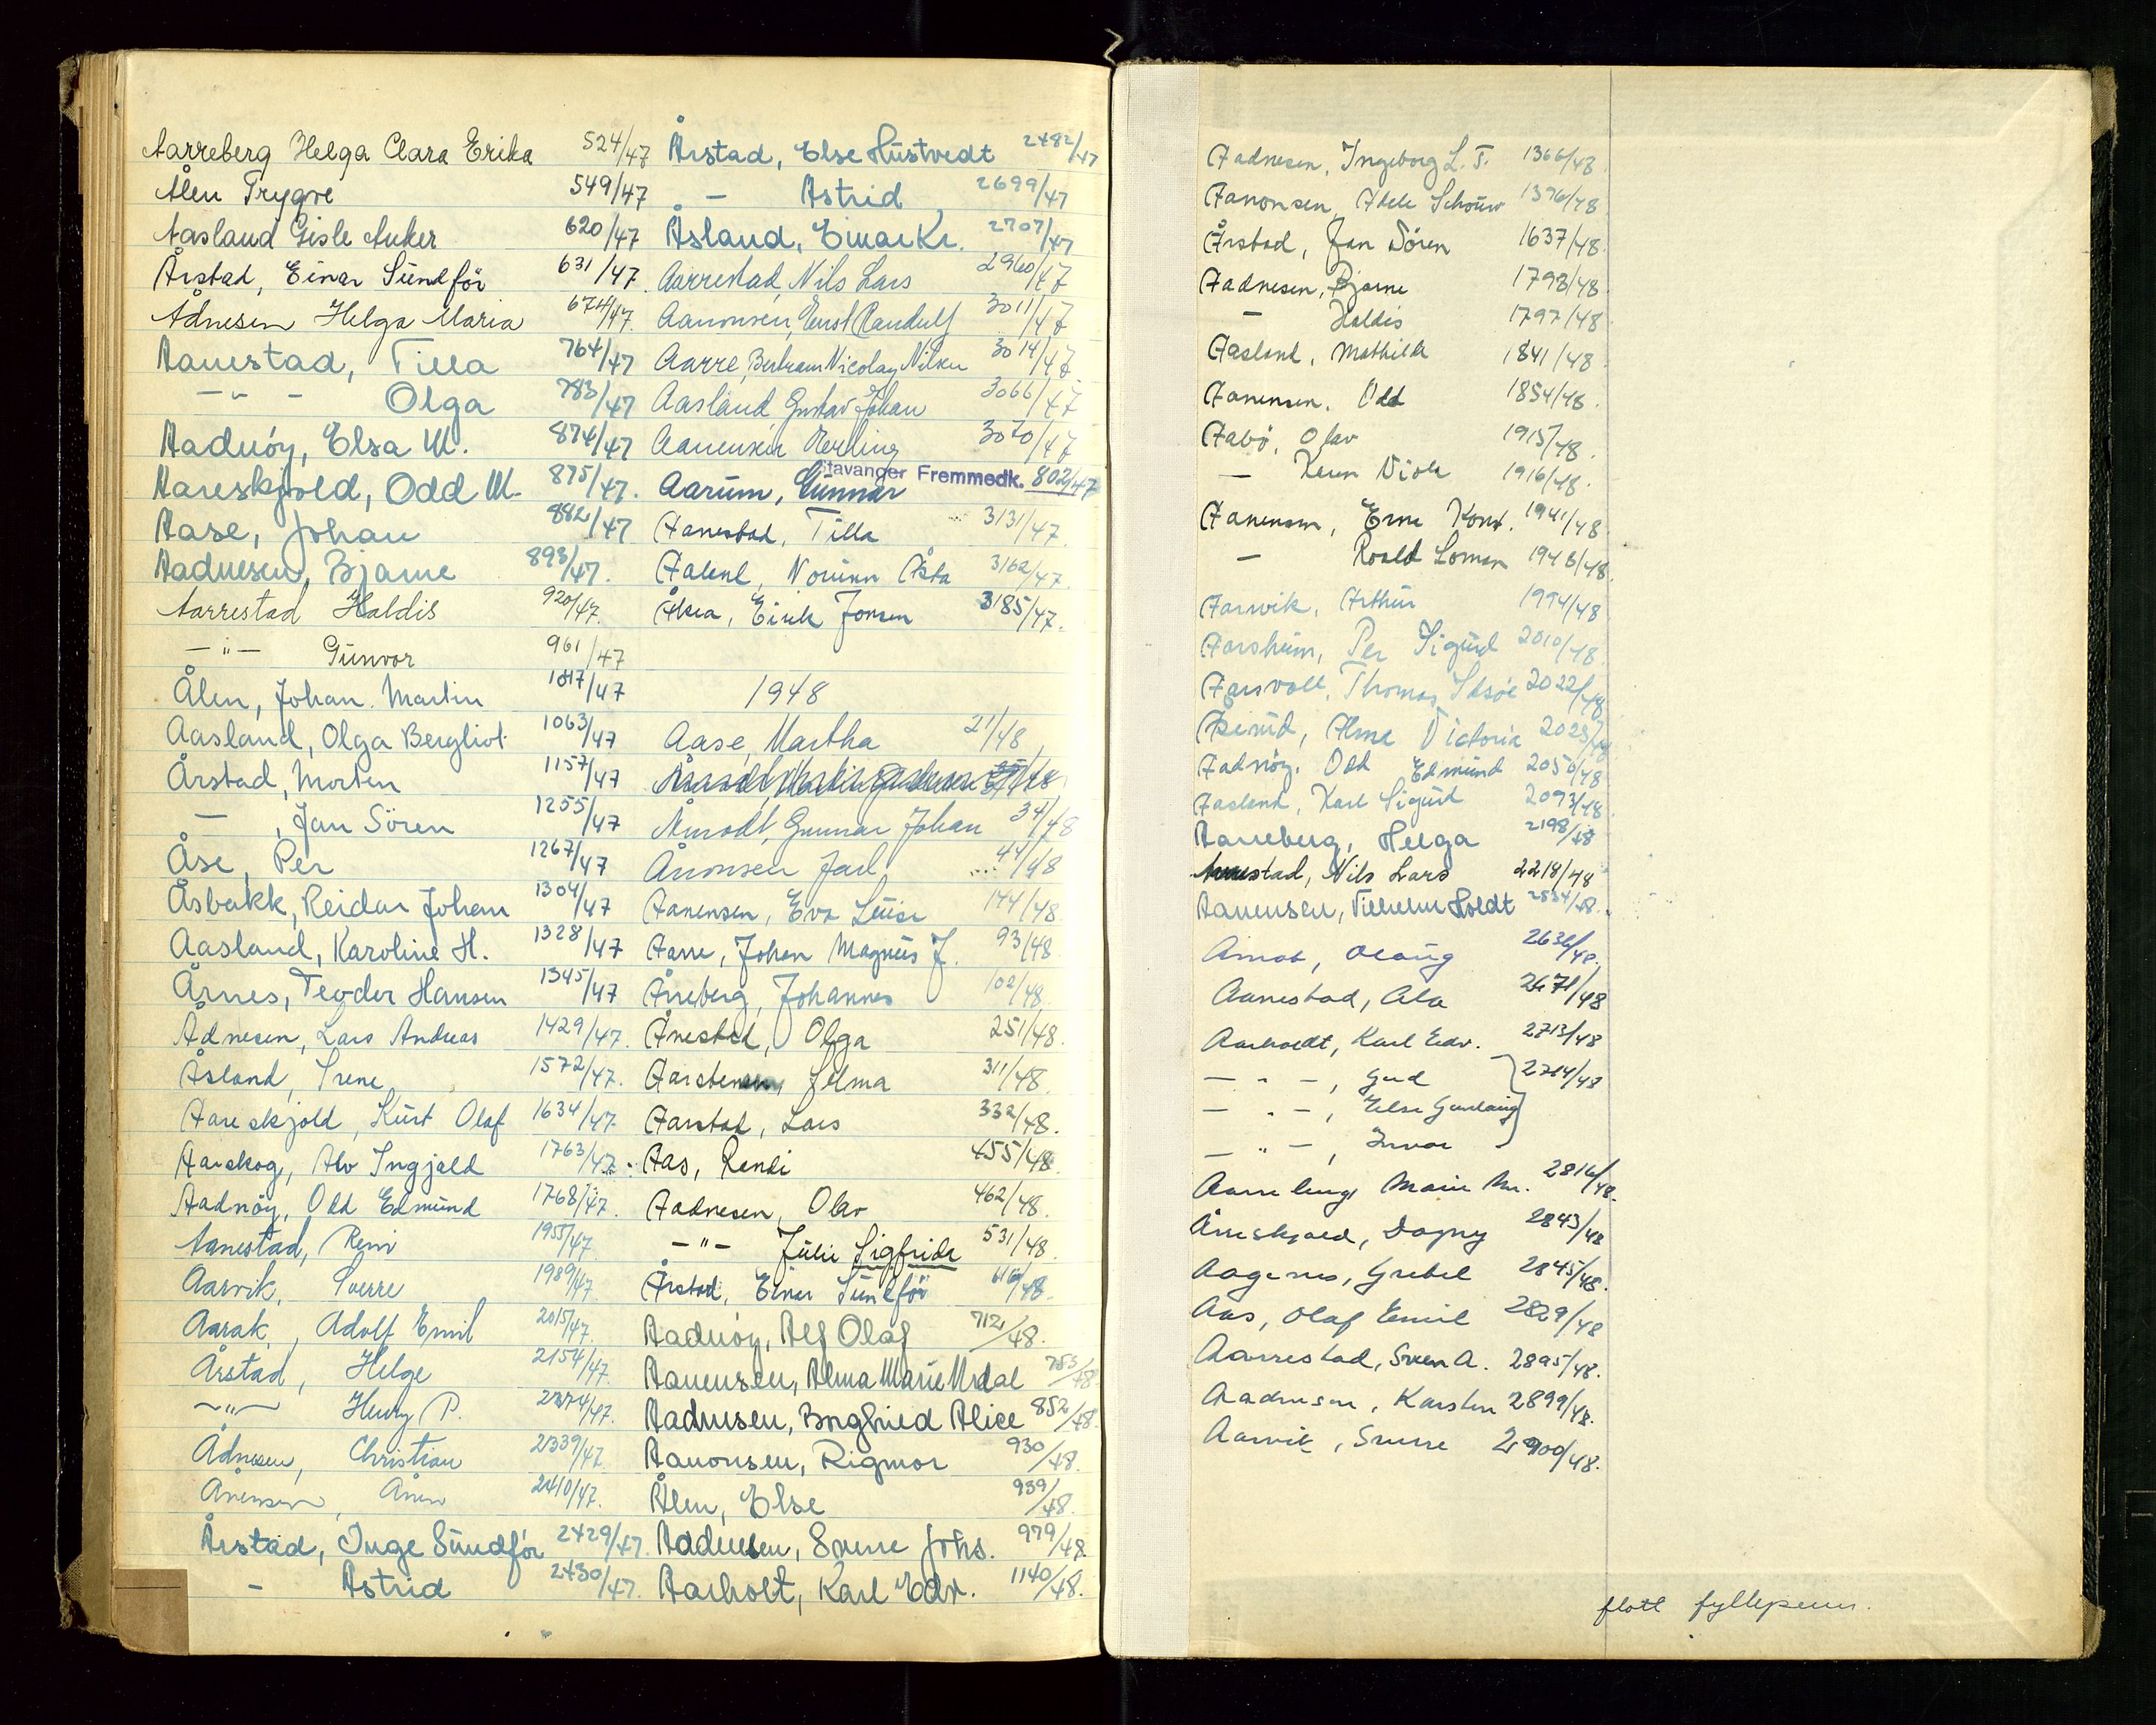 Aarreberg Helga Clara Erika 524/47
Ålen Trygve 549/47
Aasland Gisle Anker 620/47
Årstad, Einar Sündför 631/47
Ådnesen Helga Maria 674/47
Aanestad, Tilla 764/47
— " — Olga 783/47
Aadnöy, Elsa M. 874/47
Aareskjold, Odd M. 875/47.
Aase, Johan 882/47
Aadnesen, Bjarne 893/47.
Aarrestad Haldis 920/47.
— " — Günvor 961/47
Ålen, Johan Martin 1017/47
Aasland, Olga Bergliot 1063/47
Årstad, Morten 1157/47
— , Jan Sören 1255/47
Åse, Per 1267/47
Åsbakk, Reidar Johan 1304/47
Aasland, Karoline H. 1328/47
Årnes, Teodor Hansen 1345/47
Ådnesen, Lars Andreas 1429/47.
Åsland, Irene 1572/47.
Aareskjold, Kürt Olaf 1634/47.
Aarskog, Alv Ingjald 1763/47.
Aadnöy, Odd Edmünd 1768/47.
Aanestad, Reni 1955/47
Aarvik, Sverre 1989/47.
Aarak, Adolf Emil 2015/47.
Årstad, Helge 2154/47.
— " — Henry P. 2274/47.
Ådnesen, Christian 2339/47
Ånensen, Ånen 2410/47.
Årstad, Inge Sündför 2429/47.
— Astrid 2430/47.
Årstad, Else Hüstvedt 2482/47
— Astrid 2699/47
Åsland, Einar Kr. 2707/47
Aarrestad, Nils Lars 2960/47
Aanonsen, Ernst Randulf 3011/47
Aarre, Bertram Nicolay Nilsen 3014/47
Aasland, Gustav Johan 3066/47
Aanensen Herling 3070/47
Stavanger Fremmedk. 802/47
Aarüm, Günnar
Aanestad, Tilla 3131/47.
Aalend, Norünn Åsta 3162/47.
Åkra, Eirik Jonsen 3185/47.
1948
Aase, Martha 21/48
Åmodt, Gunnar Johan 34/48
Ånonsen Jarl 44/48
Aanensen, Eva Lüise 144/48.
Aarre, Johan Magnüs J. 93/48
Årreberg, Johannes 102/48.
Ånestad, Olga 251/48.
Aarstensen, Jelma 311/48.
Aarstad, Lars 332/48.
Aas, Randi 455/48.
Aadnesen, Olav 462/48.
— " — Jülie Sigfride 531/48.
Årstad, Einar Sündför 616/48.
Aadnöy, Alf Olaf 712/48.
Aanensen, Alma Marie Urdal 753/48
Aadnesen, Borghied Alice 852/48.
Aanonsen, Rigmor 930/48.
Ålen, Else 939/48.
Aadnesen, Sverre Johs. 979/48.
Aarholt, Karl Edv. 1140/48.
Aadnesen, Ingeborg L. T. 1366/48
Aanonsen, Adele Schouw 1376/48
Årstad, Jan Sören 1637/48.
Aadnesen, Bjarne 1793/48
— Haldis 1797/48
Aasland, Mathilde 1841/48
Aanensen, Odd 1854/48.
Aabö, Olav 1915/48.
— Karen Viola 1916/48.
Aanensen, Erne Konr. 1941/48.
— Roald Loman 1946/48.
Aarvik, Arthür 1994/48
Aarsheim, Per Sigürd 2010/48
Aarsvoll, Thomas Idsöe 2022/48
Åserüd, Alma Victoria 2025/48
Aadnöy, Odd Edmünd 2050/48
Aasland, Karl Sigürd 2093/48.
Aarreberg, Helga 2198/48
Aarrestad, Nils Lars 2218/48
Aanensen, Vilhelm Holdt 2534/48.
Åmot, Olaüg 2636/48.
Aanestad, Ala 2671/48
Aarholdt, Karl Edv. 2713/48
— " — , Gerd 2714/48
— " — , Else Gunlaüg
— " — , Invar
Aarreberg Marie M. 2816/48.
Åreskjold, Dagny 2843/48
Aagenes, Gretel 2845/48.
Aas, Olaf Emil 2829/48
Aarrestad, Sven A. 2895/48.
Aadnesen, Karsten 2899/48.
Aarvik, Sverre 2900/48.
flott fyllepenn.